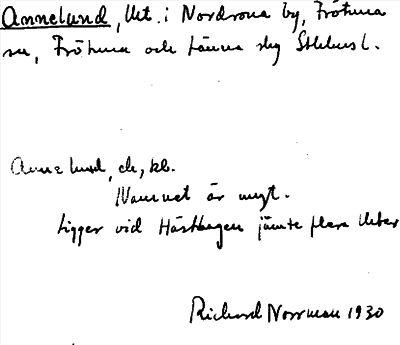 Annelund, lht. i Nordrona by, Frötuna
sn, Frötuna och Länna skg Sthlms l.
Annelund, ds, kl.
Namnet är nytt.
Ligger vid Hästhagen jämte flera lhter
Richard Norrman 1930